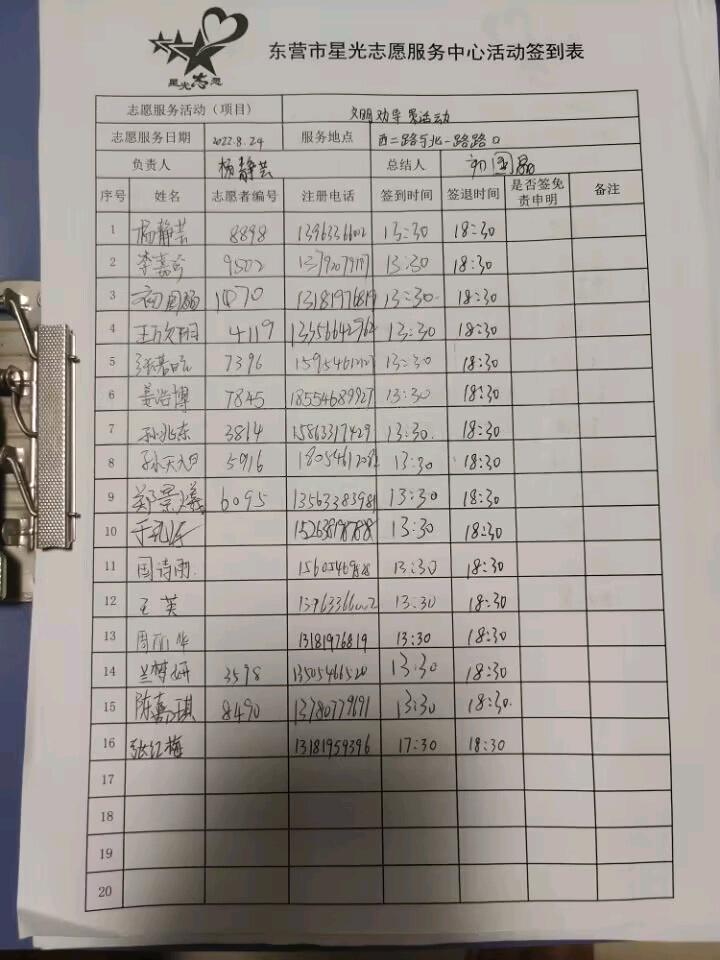 星光志愿
东营市星光志愿服务中心活动签到表
志愿服务活动（项目） 文明劝导 活动
志愿服务日期 2022.8.24 服务地点 西二路与北一路路口
负责人 杨静芸 总结人
序号 姓名 志愿者编号 注册电话 签到时间 签退时间 是否签免责申明 备注
1 杨静芸 8898 13963366002 13:30 18:30
2 李嘉 9502 13:30 18:30
3 13181976819 13:30 18:30
4 4119 13:30 18:30
5 7396 13:30 18:30
6 姜浩博 7845 18554689927 13:30 18:30
7 孙兆东 3814 15863317429 13:30. 18:30
8 5916 13:30 18:30
9 郑景曦 6095 13563383981 13:30 18:30
10 13:30 18:30
11 国诗雨. 13:30 18:30
12 王芙 13963366002 13:30 18:30
13 周丽华 13181976819 13:30 18:30
14 兰梦妍 3598 13505466520 13:30 18:30
15 陈嘉琪 8490 13780779191 13:30 18:30.
16 张红梅 13181959396 17:30 18:30
17
18
19
20